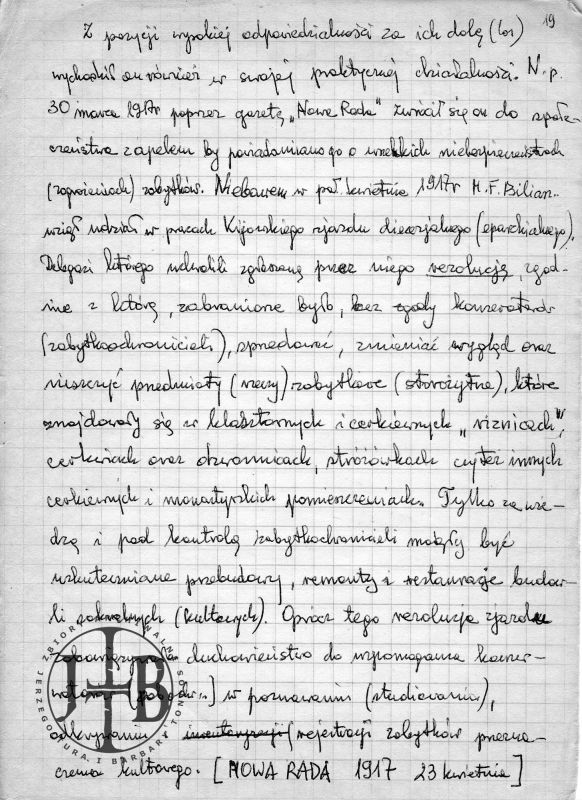 19
Z pozycji wysokiej odpowiedzialności za ich dolę (los)
wychodził on również w swojej praktycznej działalności. N.p.
30 marca 1917r poprzez gazetę „Nowa Rada" zwrócił się on do społe-
czeństwa z apelem by powiadamiano go o wszelkich niebezpieczeństwach
(zagrożeniach) zabytków. Niebawem w poł. kwietnia 1917r M.F. Bilian..
wziął udział w pracach Kijowskiego zjazdu diecezjalnego (eparchialnego).
Delegaci którego uchwalili zgłoszoną przez niego rezolucję, zgod-
nie z którą, zabronione było, bez zgody konserwatorów
(zabytkoochronicieli), sprzedawać, zmieniać wygląd oraz
niszczyć przedmioty (rzeczy) zabytkowe (starożytne), które
znajdowały się w klasztornych i cerkiewnych „riznicach",
cerkwiach oraz dzwonnicach, stróżówkach czy też innych
cerkiewnych i monastyrskich pomieszczeniach. Tylko za wie-
dzą i pod kontrolą zabytkochronicieli mogły być
uskuteczniane przebudowy, remonty i restauracje budow-
li sakralnych (kultowych). Oprócz tego rezolucja zjazdu
duchowieństwo do wspomagania konser-
watorów w poznawaniu (studiowaniu),
odkrywaniu inwentaryzacji (rejestracji zabytków przezna-
czenia kultowego. [NOWA RADA 1917 23 kwietnia]
ZBIORY
JERZEGO
JTB
I BARBARY